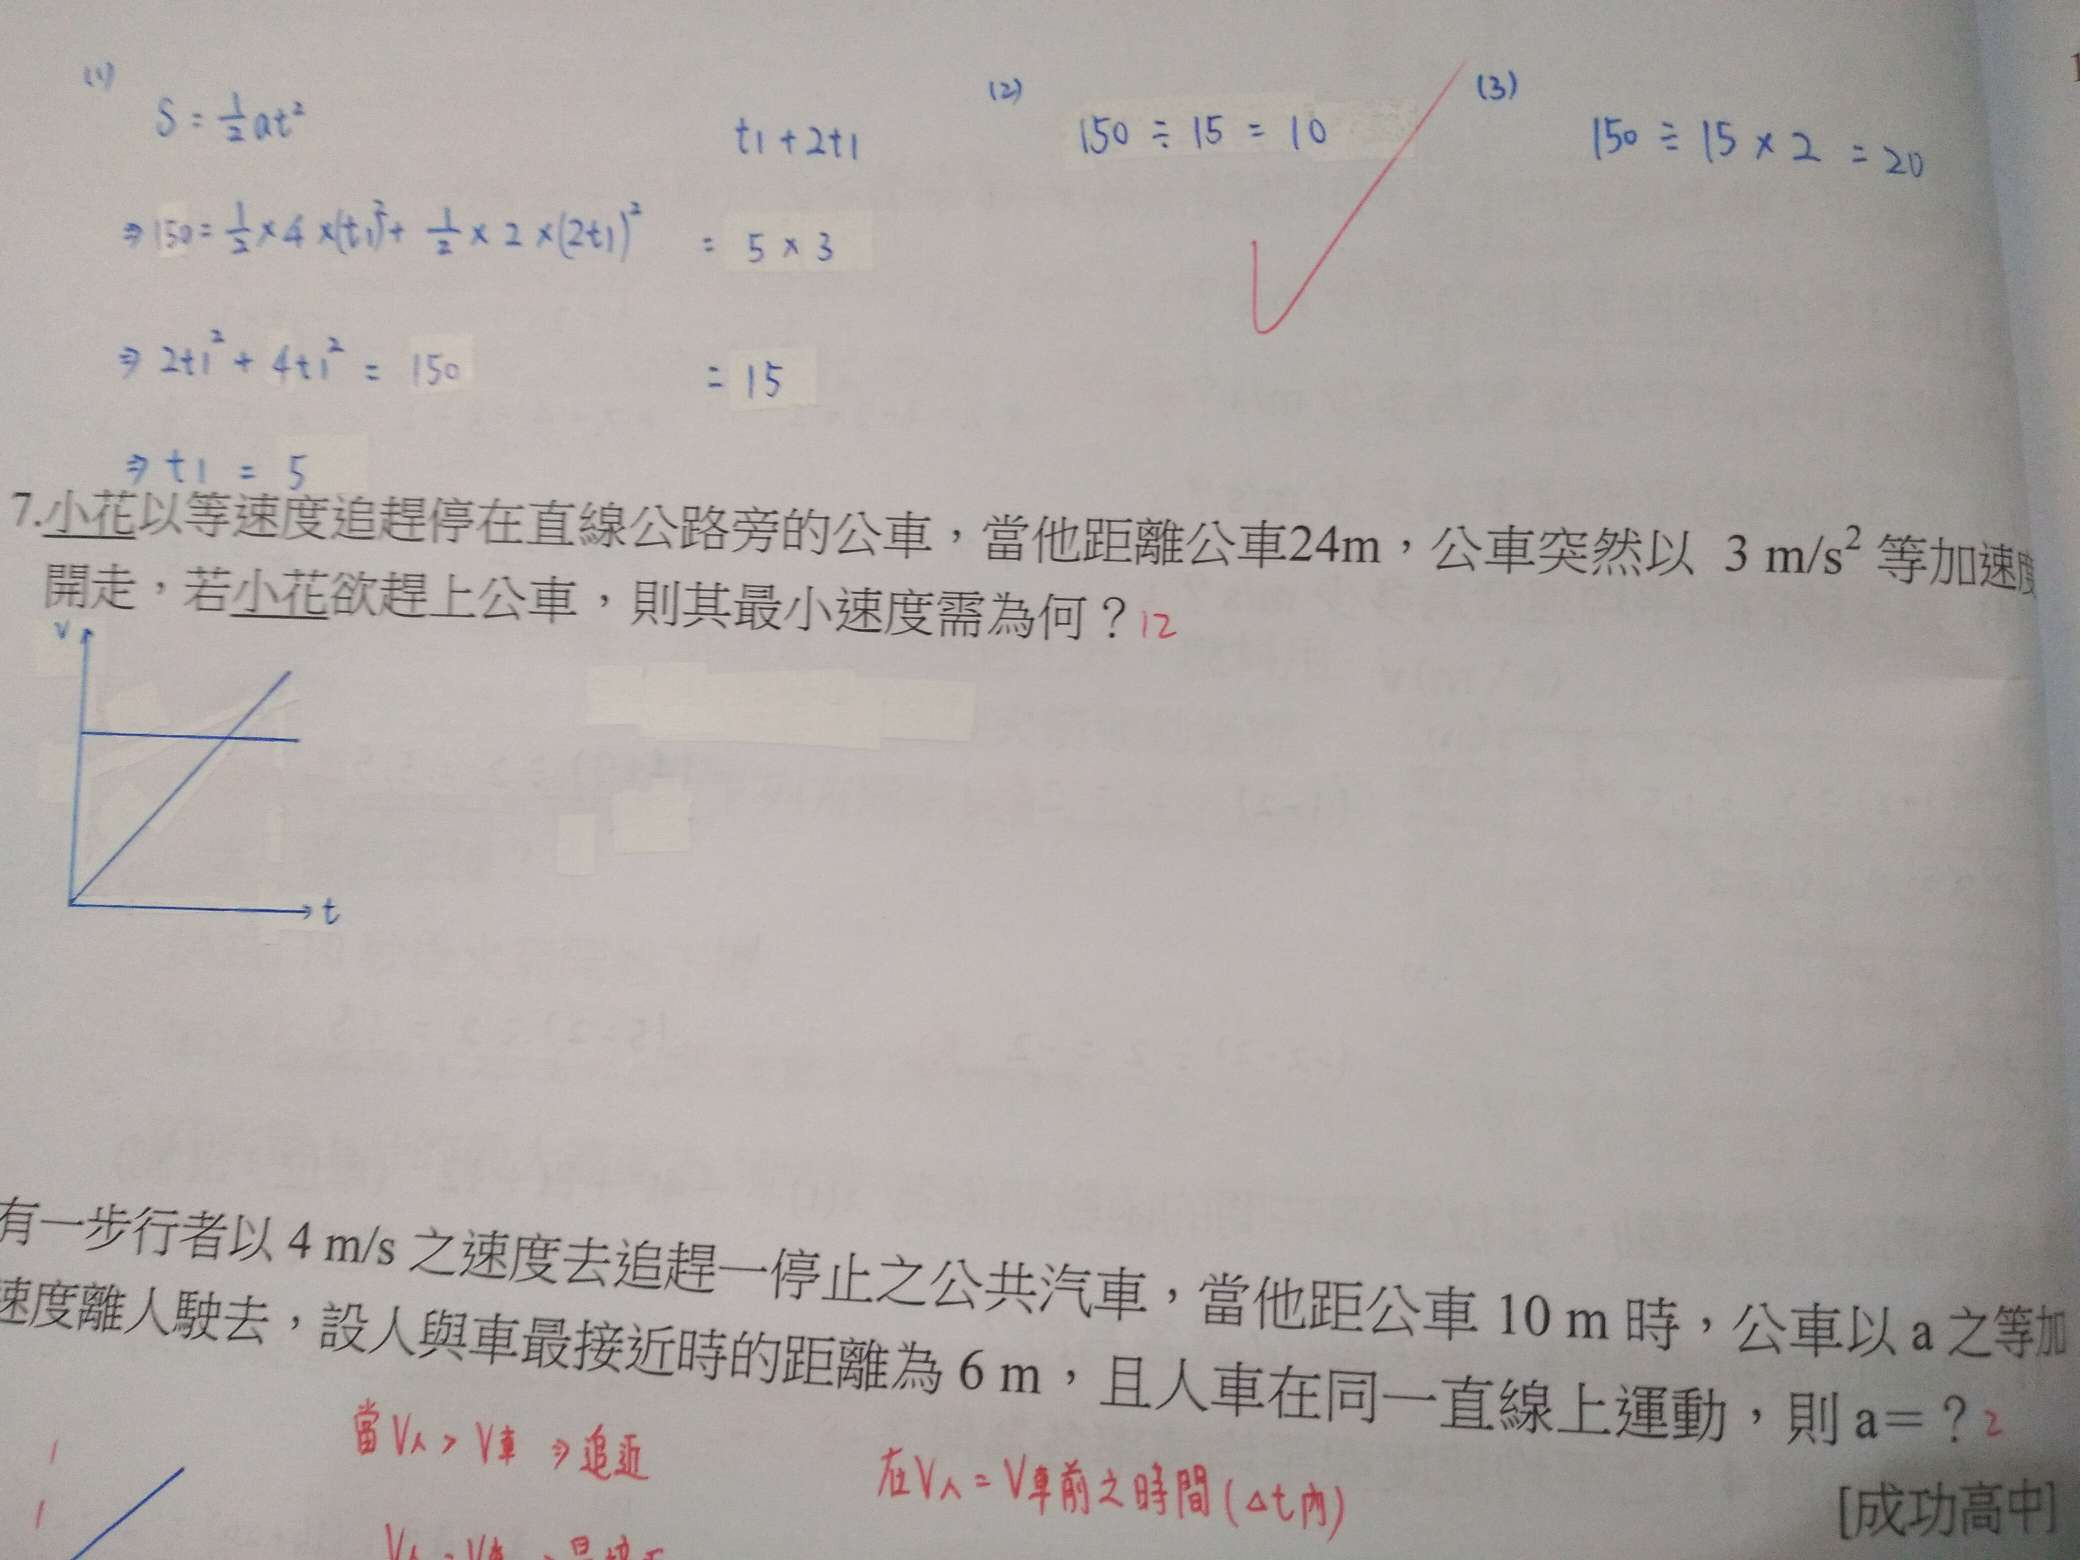 (1)
S = 1/2 at²
⇒ 150 = 1/2 × 4 × (t1)² + 1/2 × 2 × (2t1)²
⇒ 2t1² + 4t1² = 150
⇒ t1 = 5
t1 + 2t1
= 5 × 3
= 15
(2)
150 ÷ 15 = 10
(3)
150 ÷ 15 × 2 = 20
7.小花以等速度追趕停在直線公路旁的公車，當他距離公車24m，公車突然以 3 m/s² 等加速度
開走，若小花欲趕上公車，則其最小速度需為何？12
v
t
有一步行者以 4 m/s 之速度去追趕一停止之公共汽車，當他距公車 10 m 時，公車以 a 之等加
速度離人駛去，設人與車最接近時的距離為 6 m，且人車在同一直線上運動，則 a＝？2
[成功高中]
當V人 > V車 ⇒ 追近
在V人 = V車前之時間 (Δt內)